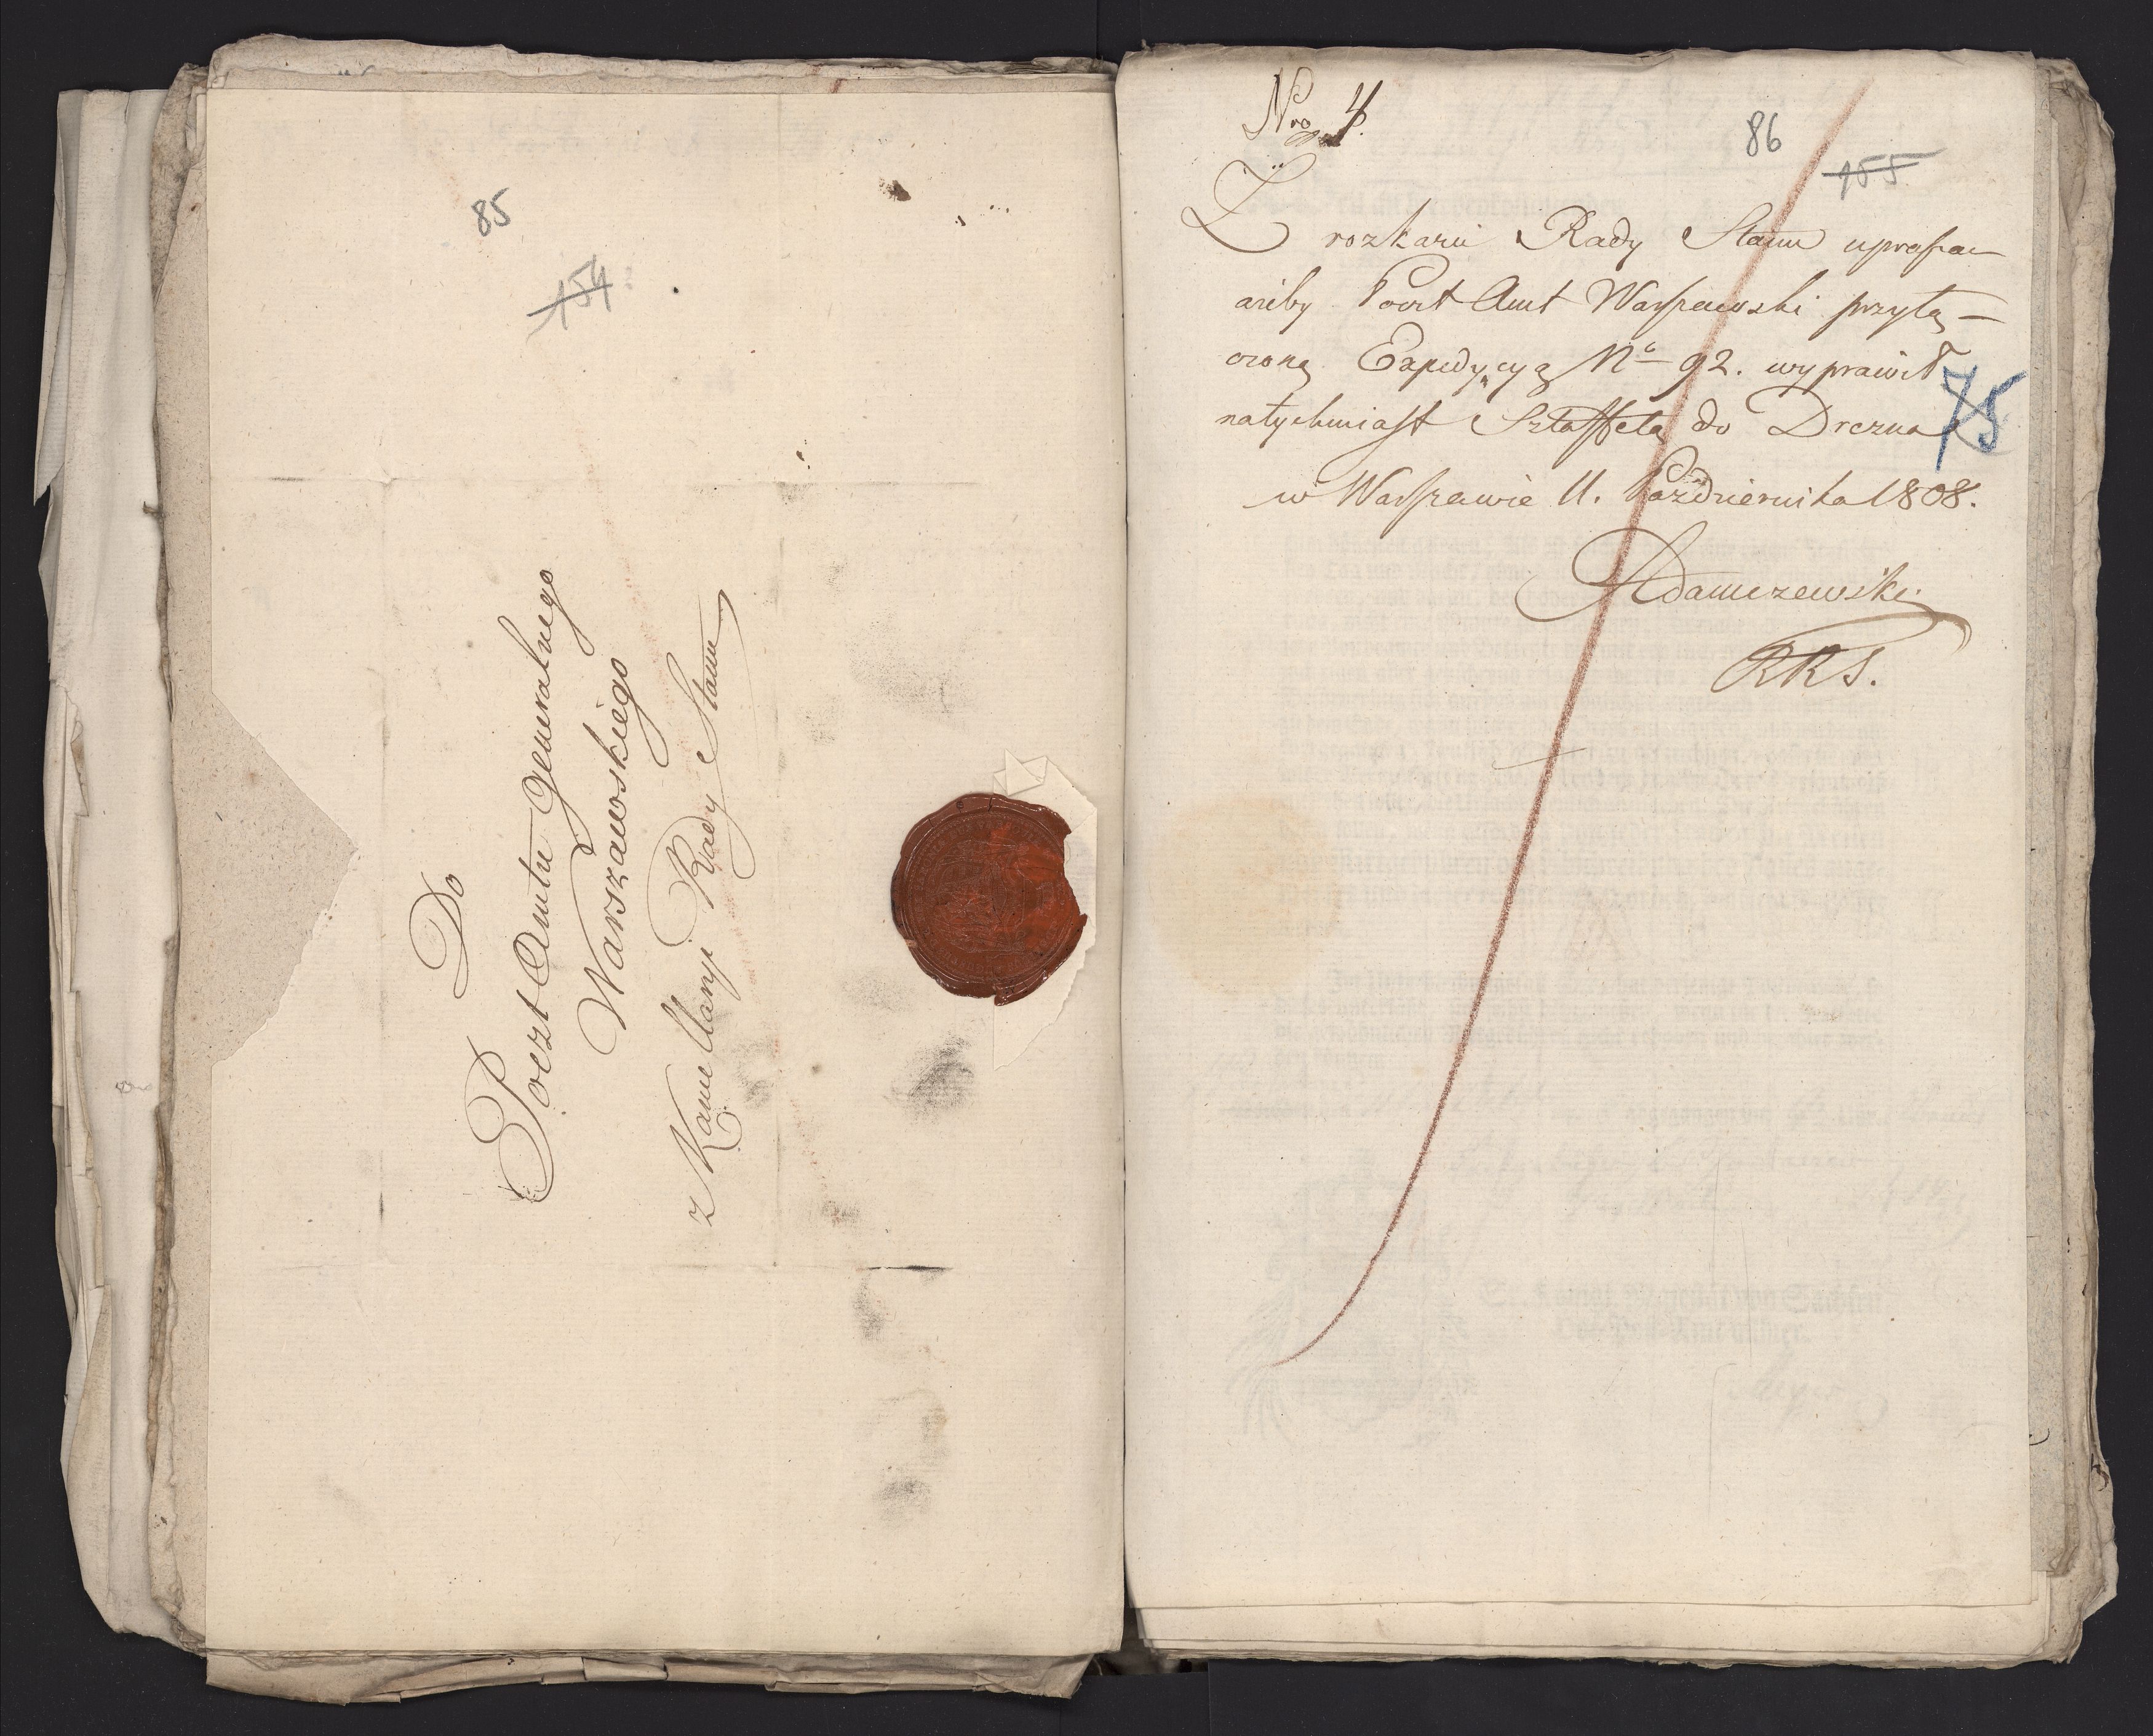 85
154
Do
Poczt Amtu Generalnego
Warszawskiego
z Kancellaryi Rady Stanu
Nro 4.
86
155
Z rozkazu Rady Stanu uprasza
ażeby Poczt Amt Warszawski przyłą-
czoną Expedycyą No 92. wyprawił
natychmiast Sztaffetą do Drezna
75
w Warszawie 11. Października 1808.
Adamczewski
RKS.